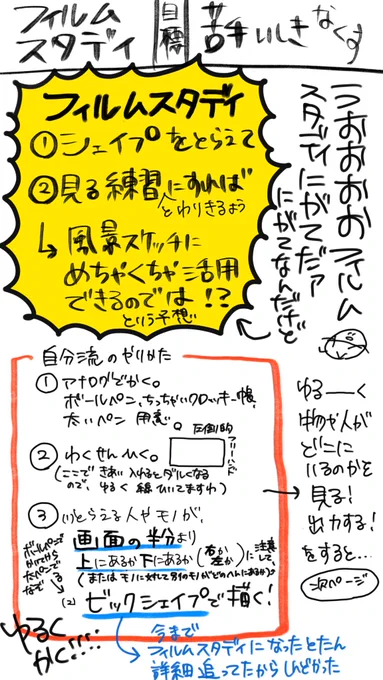 フィルム
スタディ
目標
苦手いしきなくす
フィルムスタディ
①シェイプをとらえて
②見る練習にすれば
とわりきるよう
↳風景スケッチに
めちゃくちゃ活用
できるのでは!?
という予想
うおおおおフィルム
スタディにがてだァ
にがてなんだけど
自分流のやりかた
①アナログでかく。
ボールペン、ちっちゃいクロッキー帳、
太いペン 用意。
②わくせんひく。
圧倒的
フリーハンド
(ここで きあい入れるとダルくなる
ので、ゆるく 線ひいてますわ)
③
とらえる人やモノが、
画面の半分より
上にあるか下にあるか(右か左か)に注意して、
(またはモノに対して別のモノがどのへんにあるか?)
ボールペンでかいてから
太ペンでなぞる
(2)
ビックシェイプで描く!
ゆるく
かく!!!!
今まで
フィルムスタディになったとたん
詳細追ってたからしんどかった
ゆるーく
物や人が
どこに
いるのかを
見る!
出力する!
をすると…
次ページ